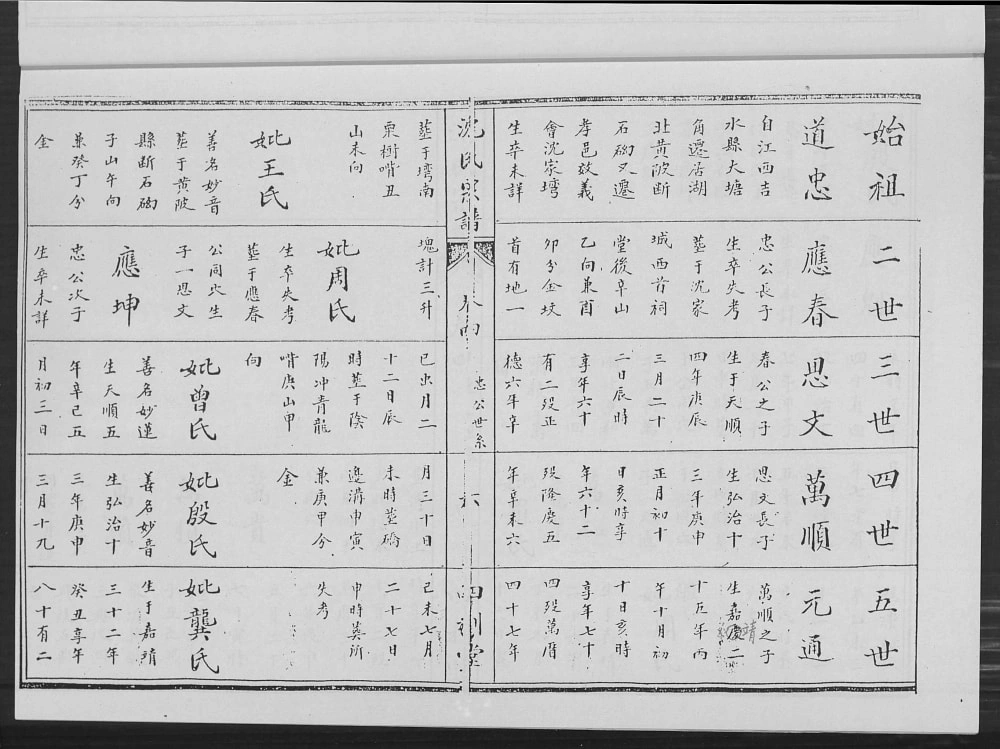 始祖
道忠
自江西吉
水縣大塘
角遷居湖
北黄陂断
石磙又遷
孝邑效義
會沈家塆
生卒未詳
塟于塆南
栗樹嘴丑
山未向
妣王氏
善名妙音
塟于黄陂
縣断石磙
子山午向
兼癸丁分
金
二世
應春
忠公長子
生卒失考
塟于沈家
城西首祠
堂後辛山
乙向兼酉
卯分金坟
首有地一
塊計三升
妣周氏
生卒失考
塟于應春
公同穴生
子一思文
應坤
忠公次子
生卒未詳
三世
思文
春公之子
生于天順
四年庚辰
三月二十
二日辰時
享年六十
有二殁正
德六年辛
巳出月二
十二日辰
時塟于陰
陽冲青龍
嘴庚山甲
向
妣曾氏
善名妙蓮
生天順五
年辛巳五
月初三日
四世
萬順
思文長子
生弘治十
三年庚申
正月初十
日亥時享
年六十二
殁隆慶五
年辛未六
月三十日
未時塟礄
邊溝申寅
兼庚甲分
金
妣殷氏
善名妙音
生弘治十
三年庚申
三月十九
五世
元通
萬順之子
生嘉慶二
靖
十五年丙
年十月初
十日亥時
享年七十
四殁萬曆
四十七年
己未七月
二十七日
申時葬所
失考
妣龔氏
生于嘉靖
三十二年
癸丑享年
八十有二
沈氏宗譜
卷四
忠公世系
六